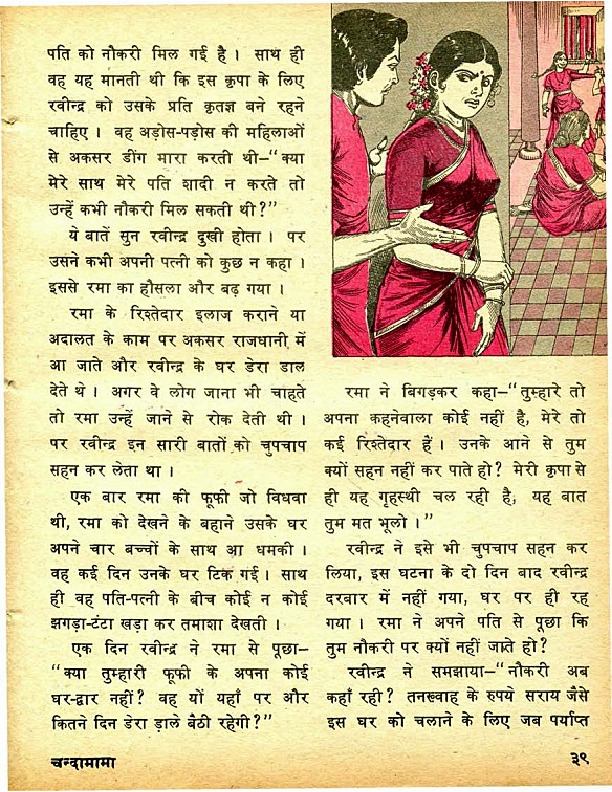 पति को नौकरी मिल गई है । साथ ही
वह यह मानती थी कि इस कृपा के लिए
रवीन्द्र को उसके प्रति कृतज्ञ बने रहने
चाहिए । वह अड़ोस-पड़ोस की महिलाओं
से अकसर डींग मारा करती थी–“क्या
मेरे साथ मेरे पति शादी न करते तो
उन्हें कभी नौकरी मिल सकती थी?”
ये बातें सुन रवीन्द्र दुखी होता । पर
उसने कभी अपनी पत्नी को कुछ न कहा ।
इससे रमा का हौसला और बढ़ गया ।
रमा के रिश्तेदार इलाज कराने या
अदालत के काम पर अकसर राजधानी में
आ जाते और रवीन्द्र के घर डेरा डाल
देते थे । अगर वे लोग जाना भी चाहते
तो रमा उन्हें जाने से रोक देती थी ।
पर रवीन्द्र इन सारी बातों को चुपचाप
सहन कर लेता था ।
एक बार रमा की फूफी जो विधवा
थी, रमा को देखने के बहाने उसके घर
अपने चार बच्चों के साथ आ धमकी ।
वह कई दिन उनके घर टिक गई । साथ
ही वह पति-पत्नी के बीच कोई न कोई
झगड़ा-टंटा खड़ा कर तमाशा देखती ।
एक दिन रवीन्द्र ने रमा से पूछा–
“क्या तुम्हारी फूफी के अपना कोई
घर-द्वार नहीं? वह यों यहाँ पर और
कितने दिन डेरा डाले बैठी रहेगी?”
रमा ने बिगड़कर कहा–“तुम्हारे तो
अपना कहनेवाला कोई नहीं है, मेरे तो
कई रिश्तेदार हैं । उनके आने से तुम
क्यों सहन नहीं कर पाते हो? मेरी कृपा से
ही यह गृहस्थी चल रही है, यह बात
तुम मत भूलो ।”
रवीन्द्र ने इसे भी चुपचाप सहन कर
लिया, इस घटना के दो दिन बाद रवीन्द्र
दरबार में नहीं गया, घर पर ही रह
गया । रमा ने अपने पति से पूछा कि
तुम नौकरी पर क्यों नहीं जाते हो?
रवीन्द्र ने समझाया–“नौकरी अब
कहाँ रही? तनख्वाह के रुपये सराय जैसे
इस घर को चलाने के लिए जब पर्याप्त
चन्दामामा
३९